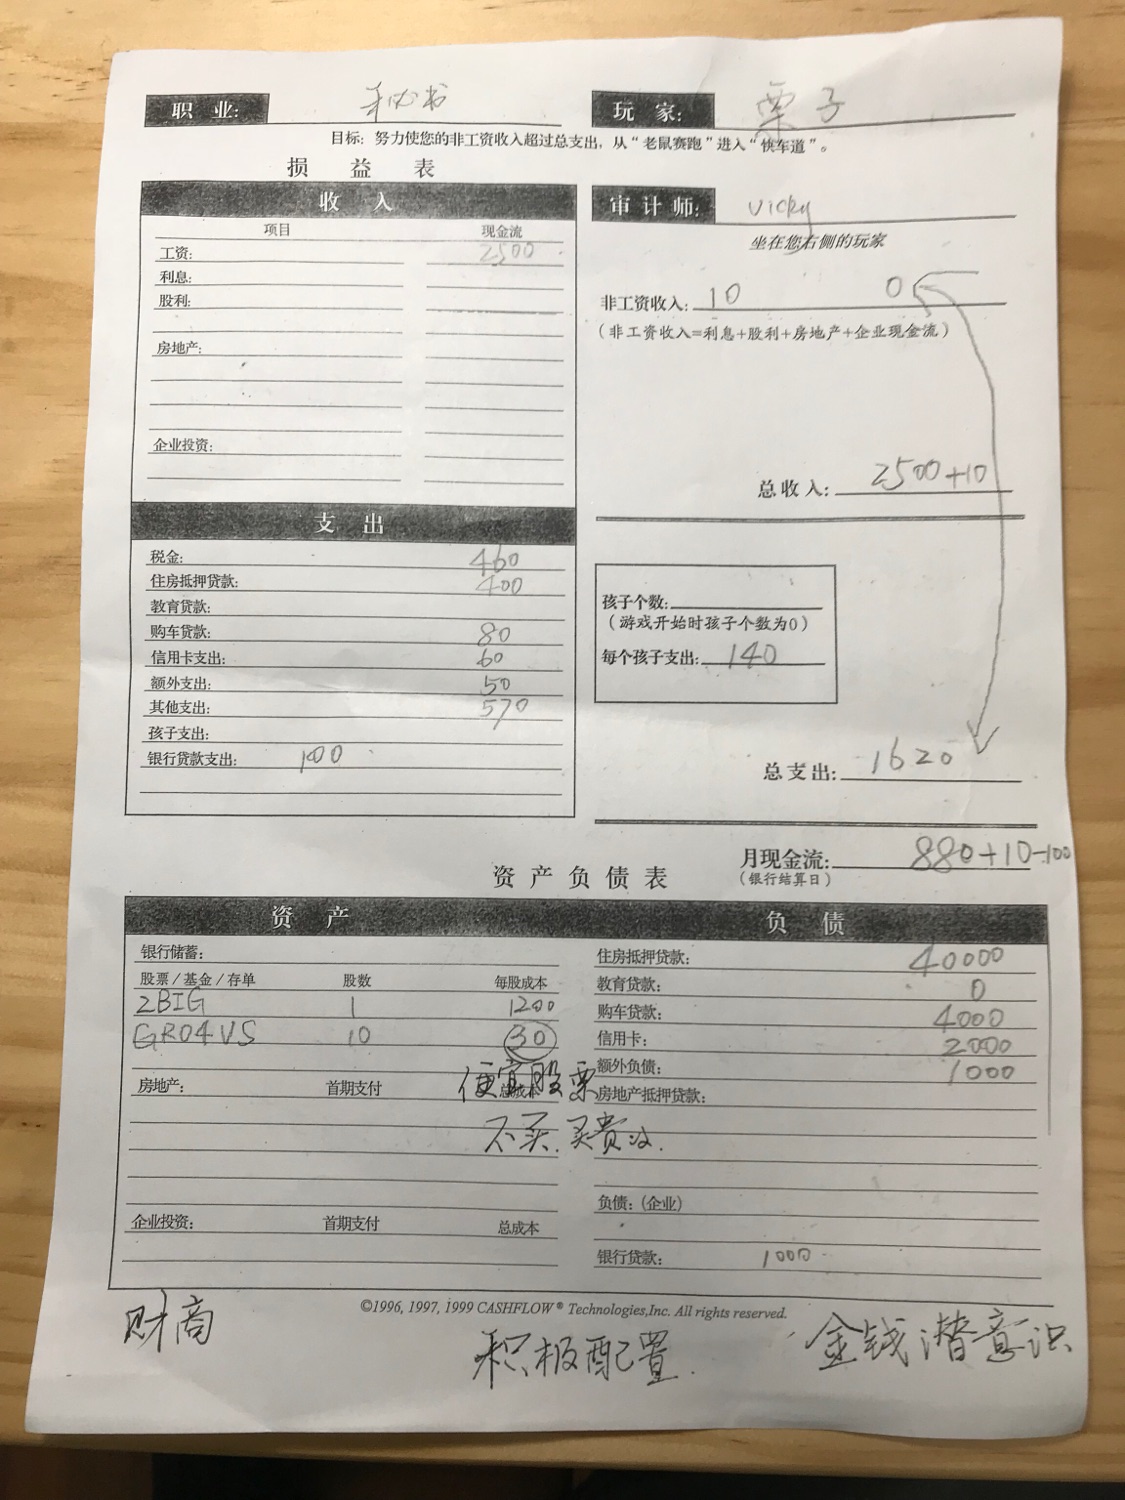 职 业: 秘书
玩 家: 栗子
目标: 努力使您的非工资收入超过总支出, 从“老鼠赛跑”进入“快车道”。
损 益 表
收 入
项目 现金流
工资: 2500
利息:
股利:
房地产:
企业投资:
审计师: Vicky
坐在您右侧的玩家
非工资收入: 10 0
(非工资收入=利息+股利+房地产+企业现金流)
总收入: 2500+10
支 出
税金: 460
住房抵押贷款: 400
教育贷款:
购车贷款: 80
信用卡支出: 60
额外支出: 50
其他支出: 570
孩子支出:
银行贷款支出: 100
孩子个数:
(游戏开始时孩子个数为0)
每个孩子支出: 140
总支出: 1620
月现金流: 880+10-100
(银行结算日)
资 产 负 债 表
资 产
银行储蓄:
股票/基金/存单 股数 每股成本
2BIG 1 1200
GRO4VS 10 30
便宜股票
不买.买贵的.
房地产: 首期支付 总成本
企业投资: 首期支付 总成本
负 债
住房抵押贷款: 40000
教育贷款: 0
购车贷款: 4000
信用卡: 2000
额外负债: 1000
房地产抵押贷款:
负债: (企业)
银行贷款: 1000
©1996, 1997, 1999 CASHFLOW® Technologies,Inc. All rights reserved.
财商
积极配置.
金钱潜意识